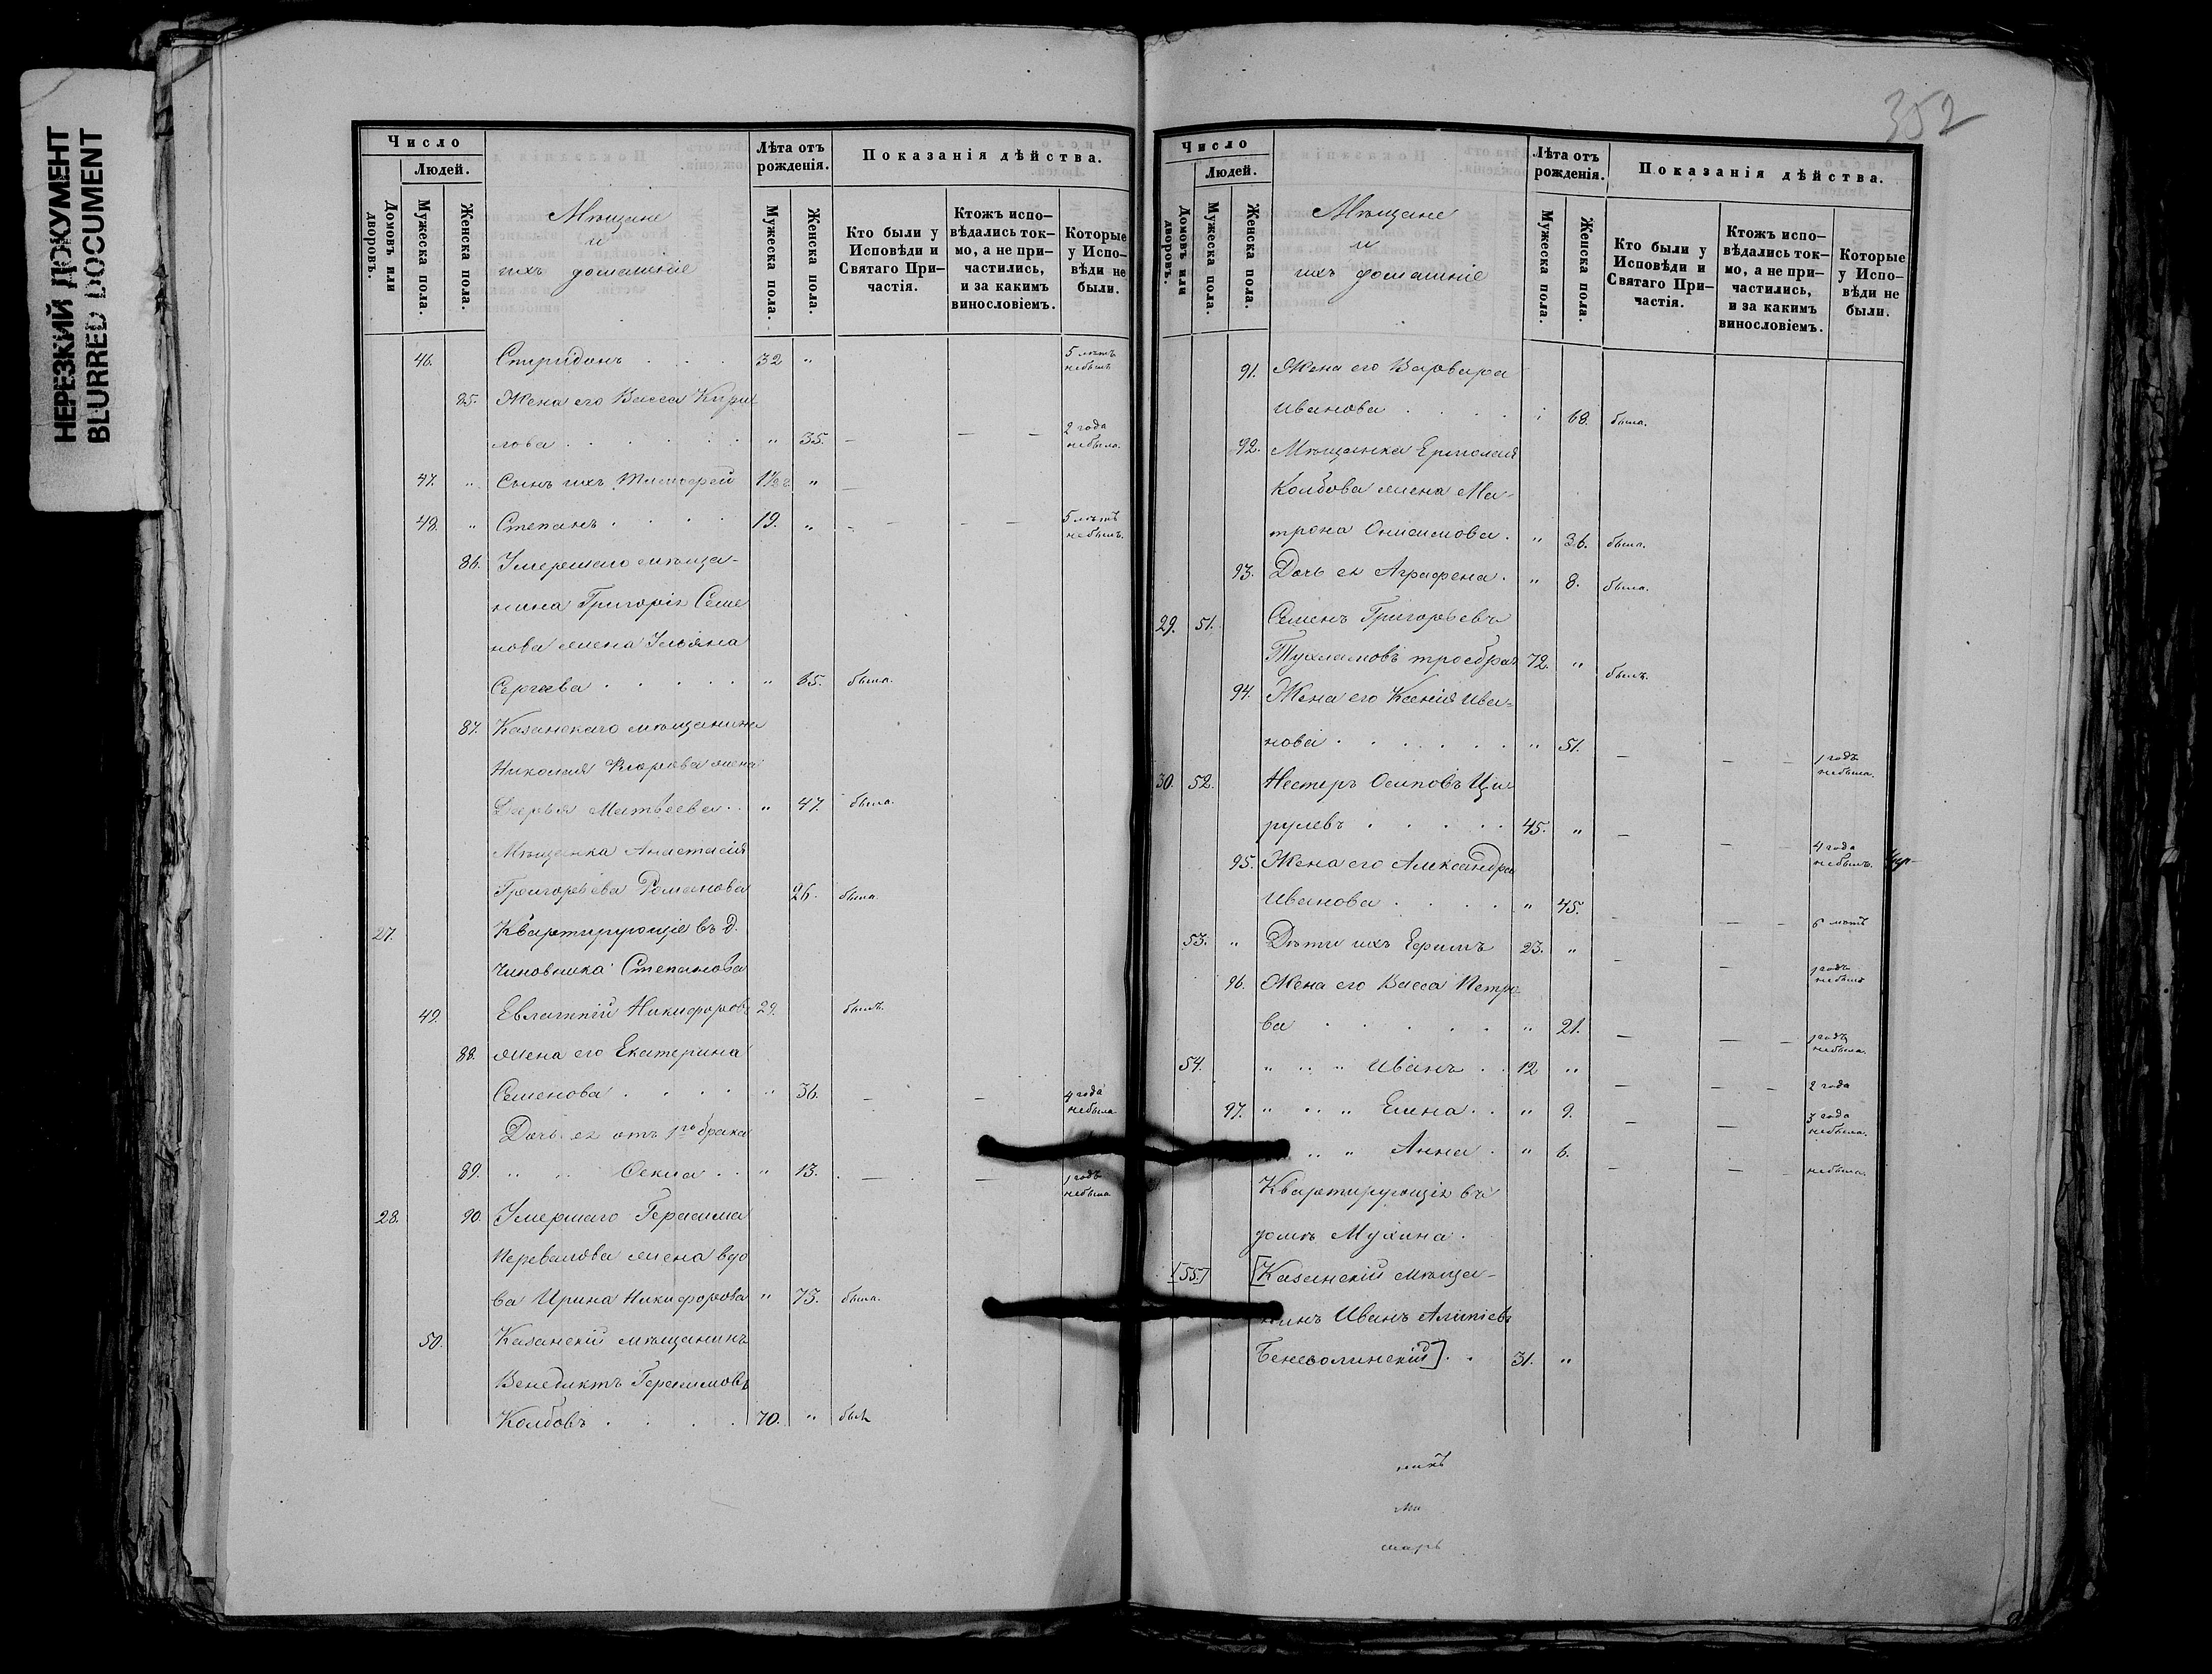 НЕРЕЗКИЙ ДОКУМЕНТ
BLURRED DOCUMENT
Число
Людей.
Домовъ или дворовъ.
Мужеска пола.
Женска пола.
Мѣщане
и
ихъ домашніе
Лѣта отъ рожденія.
Мужеска пола.
Женска пола.
Показанія дѣйства.
Кто были у Исповѣди и Святаго Причастія.
Ктожъ исповѣдались токмо, а не причастились, и за какимъ винословіемъ.
Которые у Исповѣди не были.
46. Спиридонъ . . . 32 " 5 лѣтъ небылъ
85. Жена его Васса Кири
лова . . . . . " 35. — — — 2 года небыла.
47. " Сынъ ихъ Тимофей 1½ г. " —
48. " Степанъ . . . . 19. " - - — — 5 лѣтъ небылъ.
86. Умершаго мѣща-
нина Григорія Семе
нова жена Ульяна
Сергеева . . . . . " 65. была.
87. Казанскаго мѣщанина
Николая жена
Дарья Матвѣева . . " 47. была.
Мѣщанка Анастасія
Григорьева Романова 26. была.
27. Квартирующіе въ д.
чиновника Степанова
49. Евлампій Никифоровъ 29. былъ.
88. жена его Екатерина
Семенова . . . . " 36. — — 4 года небыла
Дочь ея отъ 1го брака
89. " " . . " 13. — — 1 годъ небыла
28. 90. Умершаго Герасима
Перевалова жена вдо
ва Ирина Никифорова " 73. была.
50. Казанскій мѣщанинъ
Венедиктъ Герасимовъ
Колбовъ . . . . 70. " былъ
352
Число
Людей.
Домовъ или дворовъ.
Мужеска пола.
Женска пола.
Мѣщане
и
ихъ домашніе
Лѣта отъ рожденія.
Мужеска пола.
Женска пола.
Показанія дѣйства.
Кто были у Исповѣди и Святаго Причастія.
Ктожъ исповѣдались токмо, а не причастились, и за какимъ винословіемъ.
Которые у Исповѣди не были.
91. Жена его Варвара
Иванова . . . . 68. была.
92. Мѣщанка Ермолая
Колбова жена Ма-
трона Онисимова . " 36. была.
93. Дочь ея Аграфена . " 8. была.
29. 51. Семенъ Григорьевъ
72. " былъ.
94. Жена его Ксенія Ива-
нова . . . . . . " 51. — — - 1 годъ небыла.
30. 52. Нестеръ Осиповъ Ци
рулевъ . . . . . 45. " — — - 4 года небылъ.
95. Жена его Александра
Иванова . . . . " 45. - — - 6 лѣтъ
53. " Дѣти ихъ Ефимъ 23. " - — 1 годъ небылъ
96. Жена его Васса Петро
ва . . . . . . " 21. — — - 1 годъ небыла.
54. " " " Иванъ . . 12 " — — — 2 года
97. " " " Елена . . " 9. — — 3 года небыла.
" " Анна . " 6. — — - небыла.
Квартирующія въ
домѣ Мухина .
[55] [Казанскій мѣща-
нинъ Иванъ Алипіевъ
] . . 31. "